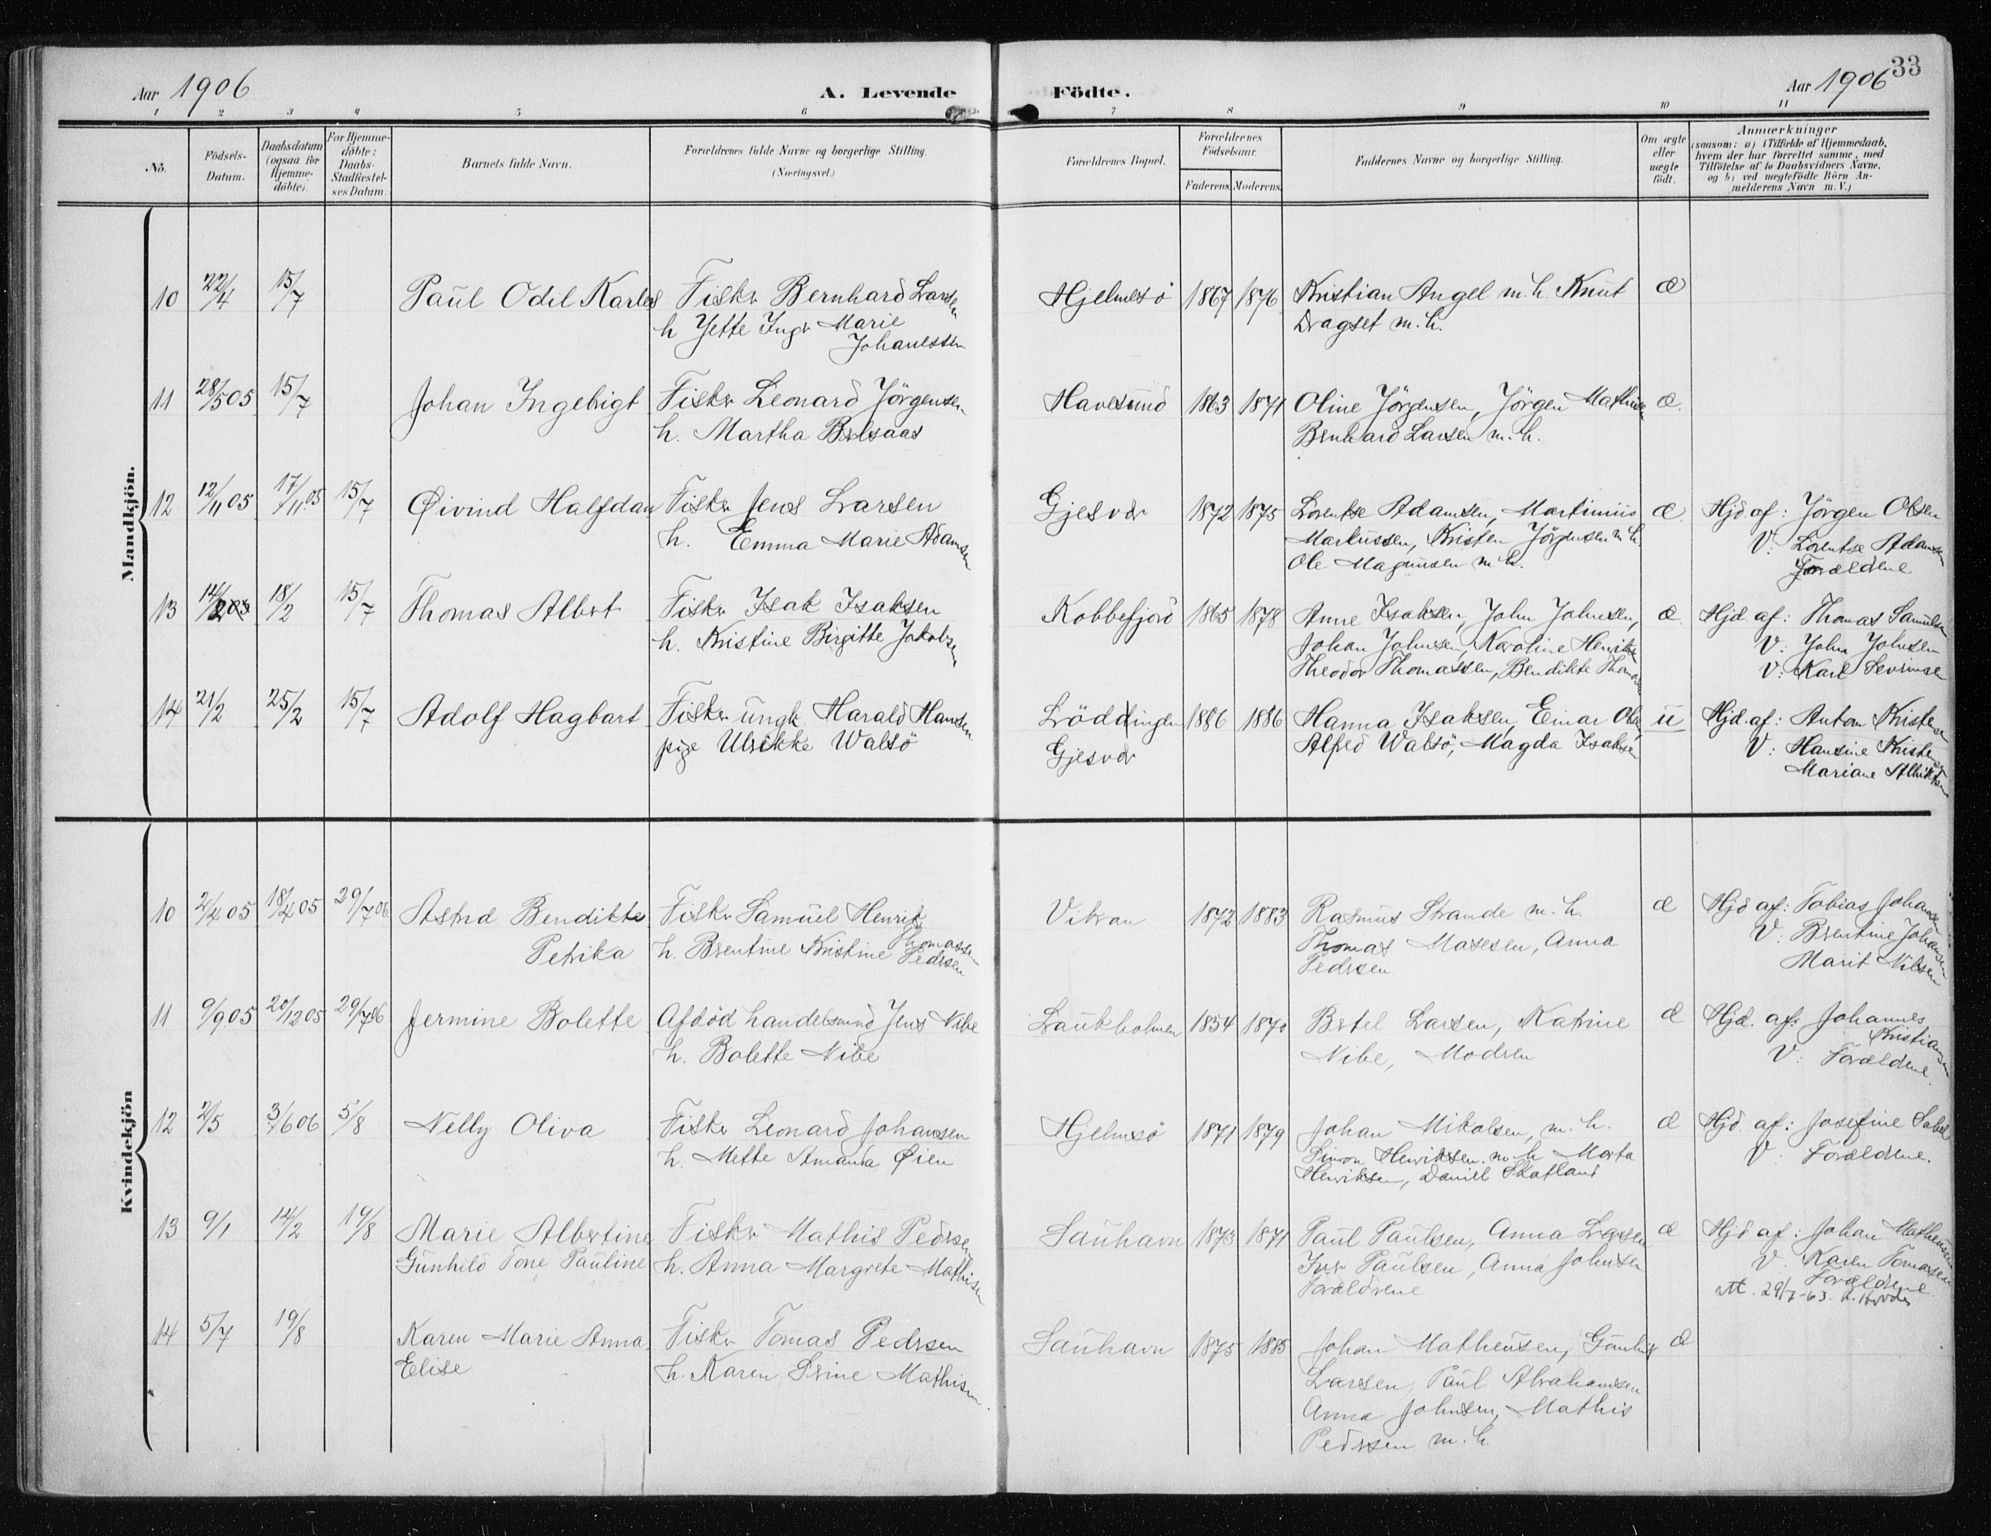 33
Aar 1906 A. Levende Födte. Aar 1906
1 2 3 4 5 6 7 8 9 10 11
No. Födsels-Datum. Daabsdatum (ogsaa for Hjemme-döbte). For Hjemme-döbte: Daabs-Stadfæstel-ses Datum. Barnets fulde Navn. Forældrenes fulde Navne og borgerlige Stilling. (Næringsvei.) Forældrenes Bopæl. Forældrenes Födselsaar. Faderens. Moderens. Faddernes Navne og borgerlige Stilling. Om ægte eller uægte födt. Anmærkninger (saasom: a) i Tilfælde af Hjemmedaab, hvem der har forrettet samme, med Tilföielse af to Daabsvidners Navne, og b) ved uægtefödte Börn An-melderens Navn m. V.)
Mandkjön.
10 22/4 15/7 Paul Odil Karles Fisker Bernhard Larsen Hjelmsö 1867 1876 Kristian Angel m. h. Knut æ
h Jette Inger Marie Dragset m. h.
Johanessen
11 28/5 05 15/7 Johan Ingebrigt Fisker Leonard Jörgensen Havesund 1863 1871 Oline Jörgensen, Jörgen Mathisen æ.
h. Martha Bernhard Larsen m. h.
12 12/11 05 17/11 05 15/7 Øivind Halfdan Fisker Jens Larsen Gjesvær 1872 1875 Lorentse Adamsen, Martinius æ Hjd. af: Jörgen Olsen
h. Emma Marie Adamsen Markussen, Kristen Jörgensen m. h. V: Lorentse Adamsen
Ole Magnusen m. h. Forældrene
13 14/2 18/2 15/7 Thomas Albert Fisker Isak Isaksen Kobbefjord 1865 1878 Anne Isaksen, John Johnsen, æ Hjd. af: Thomas Samuelsen
h. Kristine Birgitte Jakobsen Johan Johnsen, Karoline Henriksen V: John Johnsen
Theodor Thomassen, Bendikte Thomassen V: Karl Severinsen
14 21/2 25/2 15/7 Adolf Hagbart Fisker ungk. Harald Hansen Lödingen 1886 1886 Hanna Isaksen, Einar Olsen u Hjd. af: Anton Kristensen
pige Ulrikke Walsö Gjesvær Alfred Walsö, Magda Isaksen V: Hansine Kristensen
Mariane
Kvindekjön
10 2/4 05 18/4 05 29/7 06 Astrid Bendikte Fisker Samuel Henrik Vikran 1872 1883 Rasmus Strande m. h. æ Hjd af: Tobias Johansen
Petrika Thomassen h. Berntine Kristine Pedersen Thomas Mosesen, Anna V: Berntine Johansen
Pedersen Marit Nilsen
11 9/9 05 20/12 05 29/7 06 Jermine Bolette Afdöd handelsmand Jens Nibe Laukholmen 1854 1870 Bertel Larsen, Katrine æ Hjd. af: Johannes Kristiansen
h. Bolette Nibe Nibe, Moderen V: Forældrene.
12 2/5 3/6 06 5/8 Nelly Oliva Fisker Leonard Johansen Hjelmsö 1871 1879 Johan Mikalsen, m. h. æ Hjd. af: Josefine Sabel
h. Mette Amanda Øien Simon Henriksen m. h. Marta V: Forældrene.
Henriksen, Daniel Skatland
13 9/1 14/2 19/8 Marie Albertine Fisker Mathis Pedersen Sauhavn 1873 1871 Paul Paulsen, Anna Larsen æ Hjd af: Johan Matheusen
Gunhild Tone Pauline h. Anna Margrete Mathisen Iver Paulsen, Anna Johnsen V. Karen Tomasen
Forældrene Forældrene
Att. 29/7-63.
14 5/7 19/8 Karen Marie Anna Fisker Tomas Pedersen Sauhavn 1875 1885 Johan Matheusen, Gunhild æ
Elise h. Karen Mathisen Larsen, Paul Abrahamsen
Anna Johnsen, Mathis
Pedersen m. h